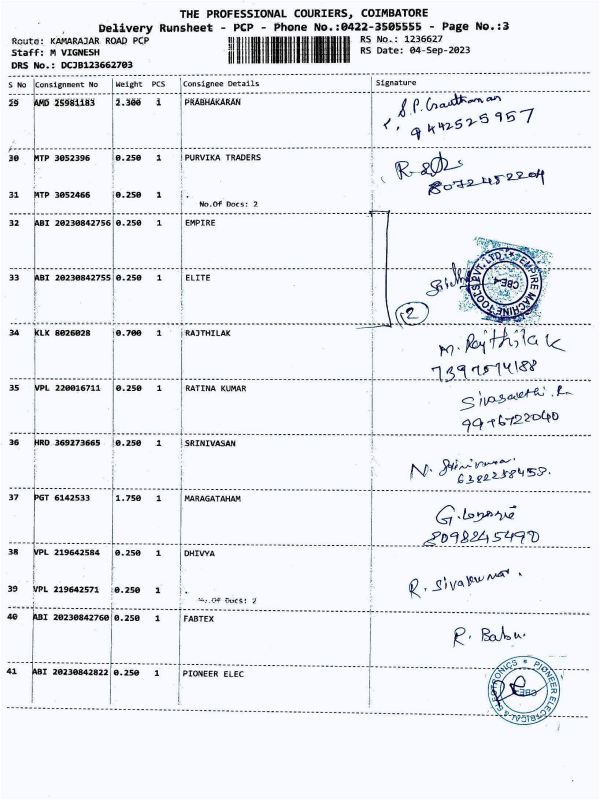 THE PROFESSIONAL COURIERS, COIMBATORE
Delivery Runsheet - PCP - Phone No.:0422-3505555 - Page No.:3
Route: KAMARAJAR ROAD PCP
RS No.: 1236627
Staff: M VIGNESH
RS Date: 04-Sep-2023
DRS No.: DCJB123662703
S No Consignment No Weight PCS Consignee Details Signature
29 AMD 25981183 2.300 1 PRABHAKARAN
9442525957
30 MTP 3052396 0.250 1 PURVIKA TRADERS
8072452204
31 MTP 3052466 0.250 1 .
No.Of Docs: 2
32 ABI 20230842756 0.250 1 EMPIRE
33 ABI 20230842755 0.250 1 ELITE
EMPIRE MACHINE TOOLS PVT. LTD. * CBE-4
2
34 KLK 8026028 0.700 1 RAJTHILAK
M. Rajthilak
35 VPL 220016711 0.250 1 RATINA KUMAR
36 HRD 369273665 0.250 1 SRINIVASAN
N.
6382258458.
37 PGT 6142533 1.750 1 MARAGATAHAM
8098245490
38 VPL 219642584 0.250 1 DHIVYA
39 VPL 219642571 0.250 1 .
No.Of Docs: 2
R. Sivakumar.
40 ABI 20230842760 0.250 1 FABTEX
R. Babu.
41 ABI 20230842822 0.250 1 PIONEER ELEC
PIONEER ELECTRICAL & ELECTRONICS *